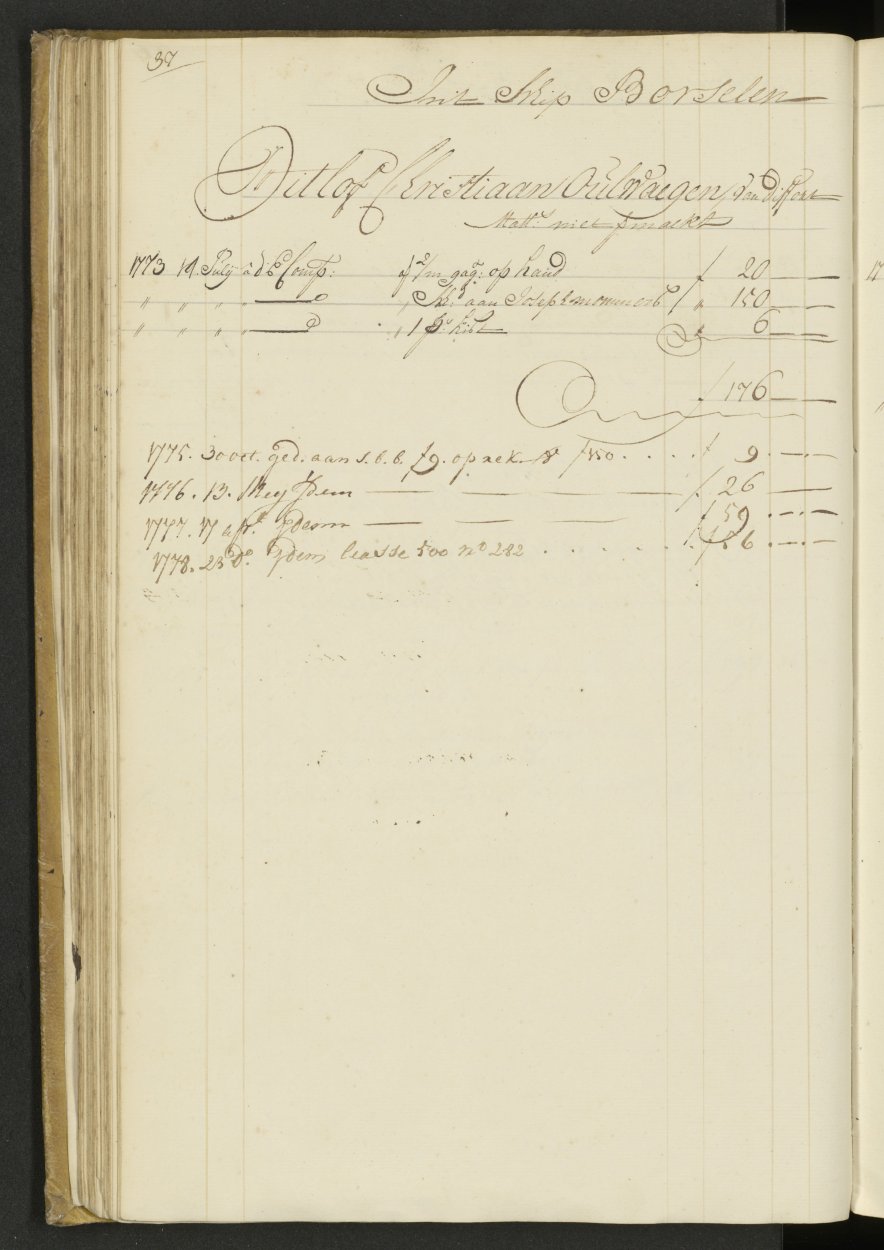 37
Int Schip Borselen
Ditlof Christiaan Oulwaegen, Van
Matt:s niet gemaekt
1773 14 July a d'E Comp: of 2/m gag: op hand f 20 —
" " " " — do , Sch: aan Joseph f " 150 —
" " " " — do , 1 p:s kist " 6 —
f 176 —
1775. 30 oct. ged. aan s.b.b. f 9. op rek. v f 150 . . . . f 9 . — . —
1776. 13. Mey Idem — — — f 26 —
1777. 17 apr:l Idem — — — f 59 . — . —
1778. 23 do. Idem liasse 500 no 282 . . . . . f 56 . — . —
17